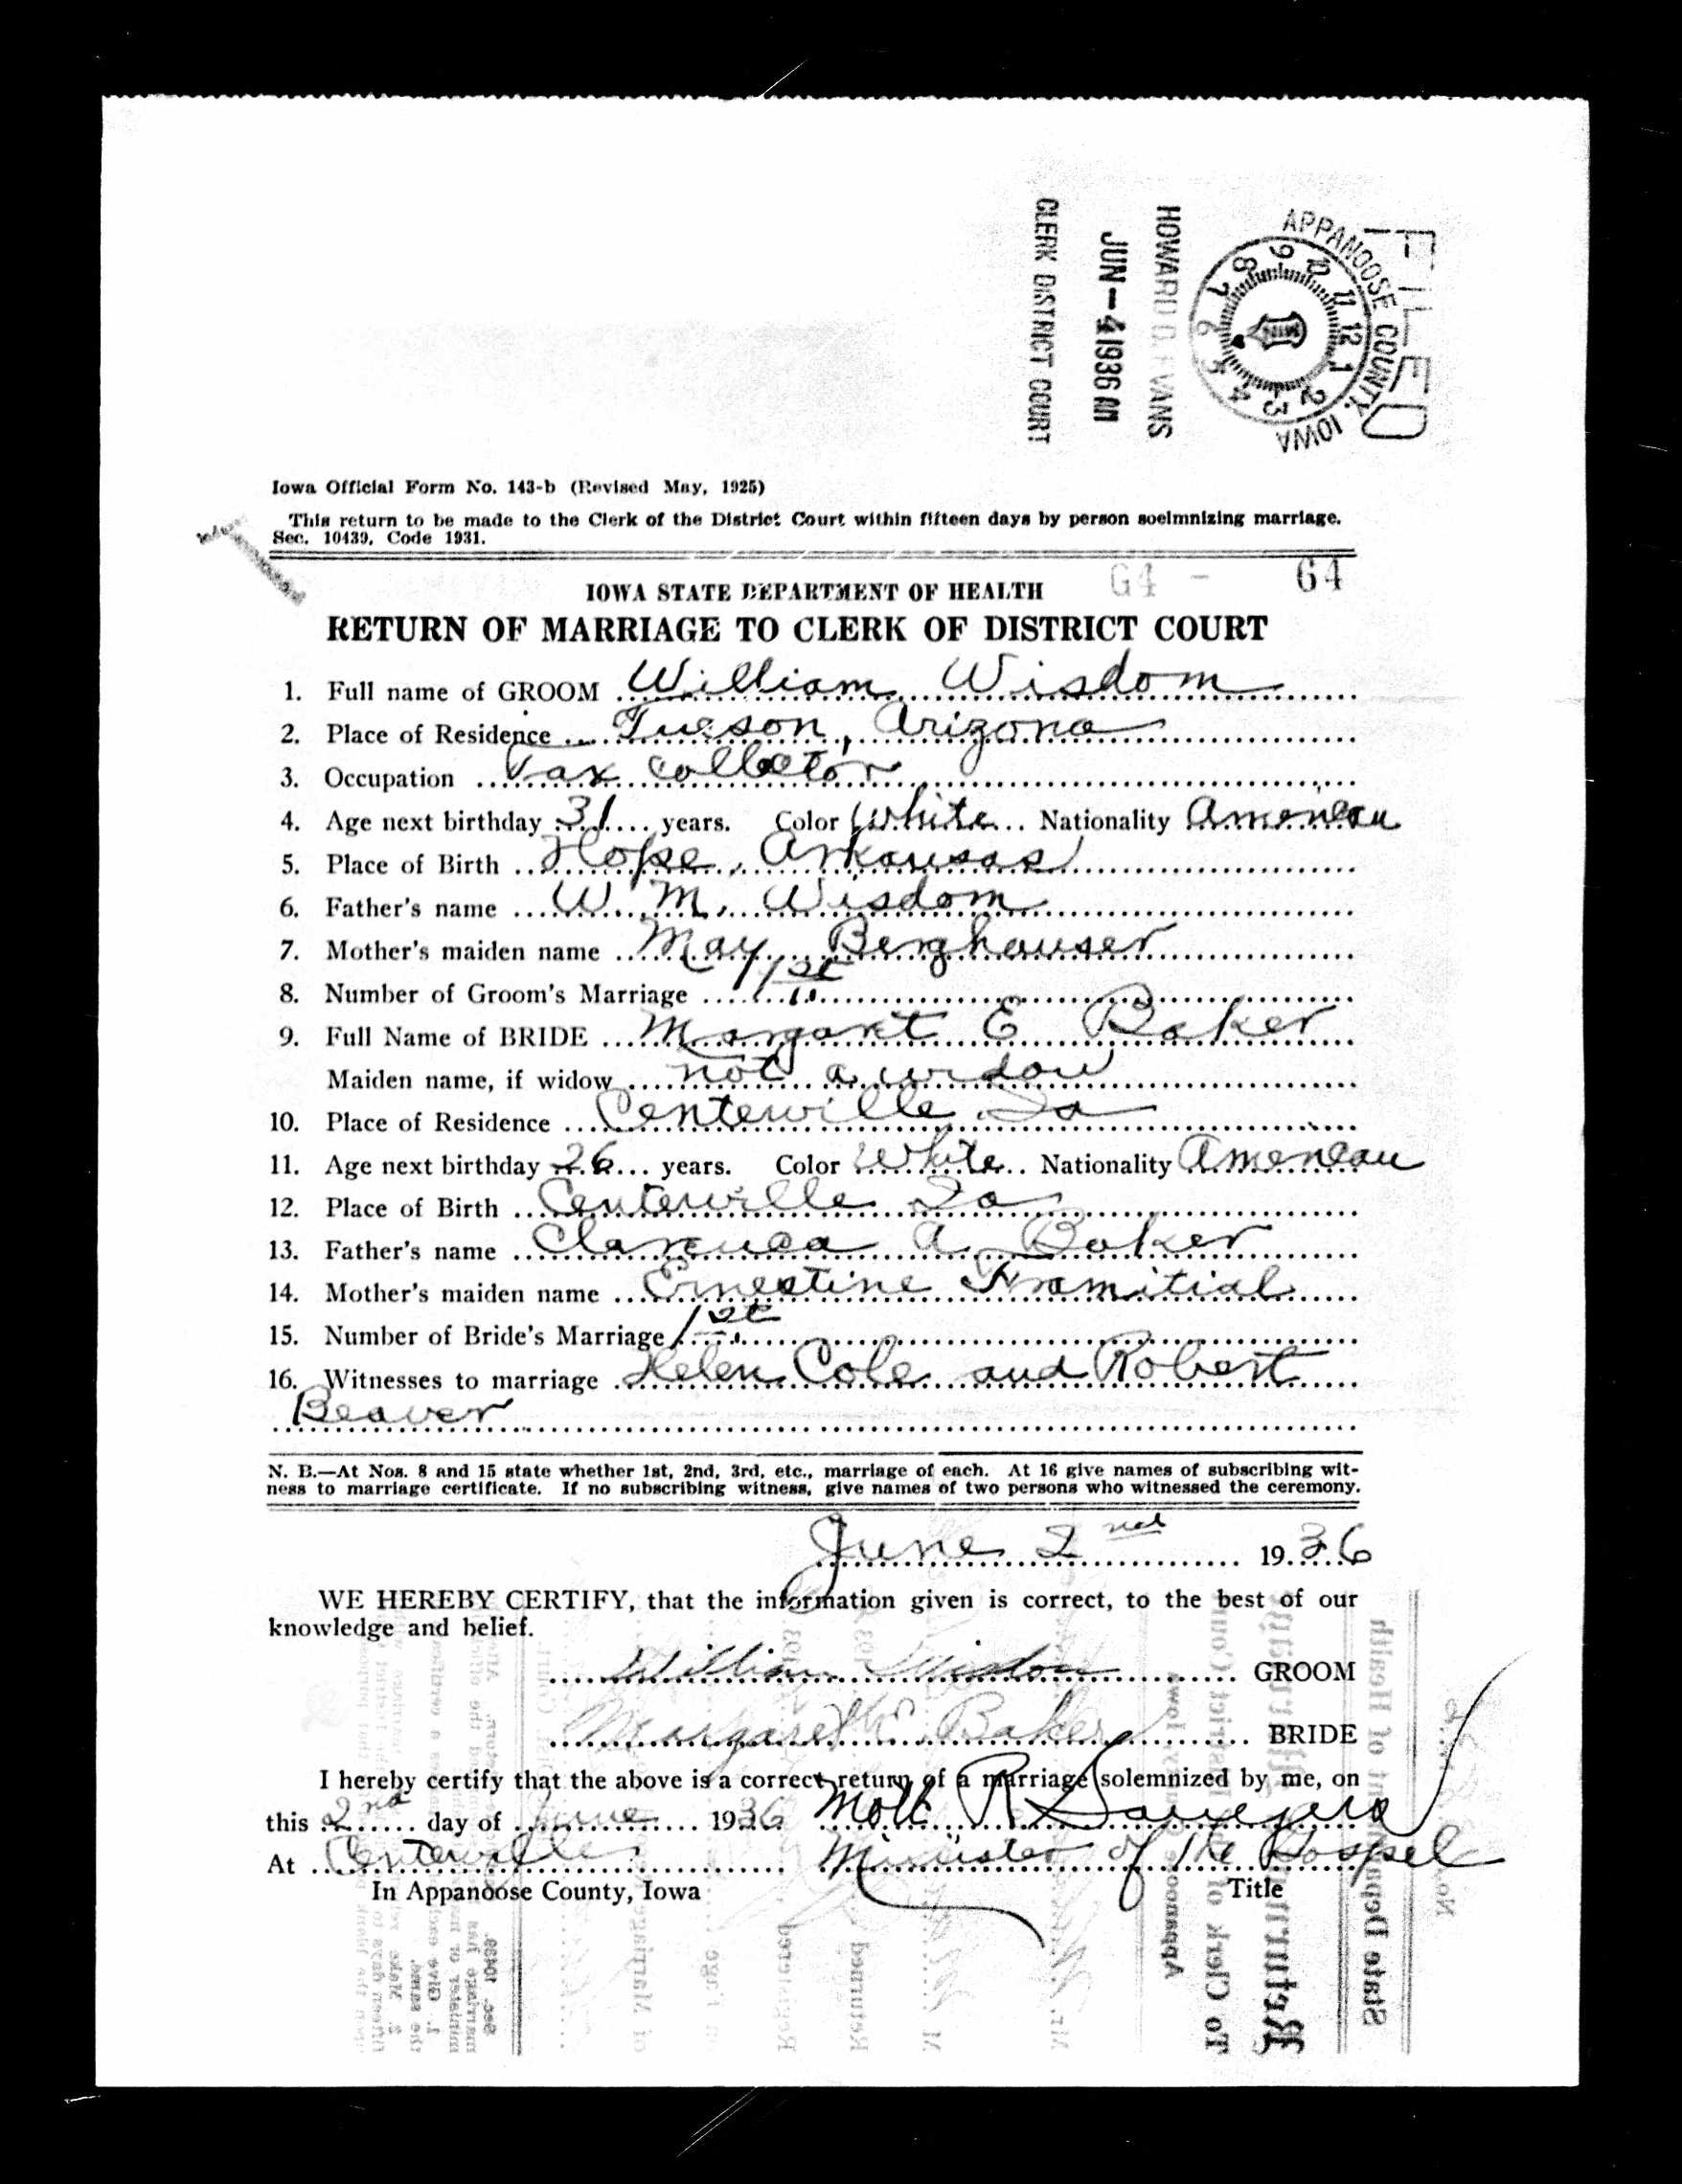 FILED
APPANOOSE COUNTY, IOWA
1 2 3 4 5 6 7 8 9 10 11 12
HOWARD D. EVANS
JUN -4 1936 AM
CLERK DISTRICT COURT
Iowa Official Form No. 143-b (Revised May, 1925)
This return to be made to the Clerk of the District Court within fifteen days by person soelmnizing marriage.
Sec. 10439, Code 1931.
G4 - 64
IOWA STATE DEPARTMENT OF HEALTH
RETURN OF MARRIAGE TO CLERK OF DISTRICT COURT
1. Full name of GROOM William Wisdom
2. Place of Residence Tucson, Arizona
3. Occupation Tax Collector
4. Age next birthday 31 years. Color White Nationality American
5. Place of Birth Hope, Arkansas
6. Father's name W. M. Wisdom
7. Mother's maiden name May Berghauser
8. Number of Groom's Marriage 1st
9. Full Name of BRIDE Margaret E Baker
Maiden name, if widow not a widow
10. Place of Residence Centerville, Ia
11. Age next birthday 26 years. Color White Nationality American
12. Place of Birth Centerville Ia
13. Father's name Clarence A. Baker
14. Mother's maiden name Ernestine
15. Number of Bride's Marriage 1st
16. Witnesses to marriage Helen Cole and Robert
Beaver
N. B.—At Nos. 8 and 15 state whether 1st, 2nd, 3rd, etc., marriage of each. At 16 give names of subscribing wit-
ness to marriage certificate. If no subscribing witness, give names of two persons who witnessed the ceremony.
June 2nd 1936
WE HEREBY CERTIFY, that the information given is correct, to the best of our
knowledge and belief.
William Wisdom GROOM
Margaret E. Baker BRIDE
I hereby certify that the above is a correct return of a marriage solemnized by me, on
this 2nd day of June 1936 Mott R
At Centerville Minister of the Gospel
In Appanoose County, Iowa Title